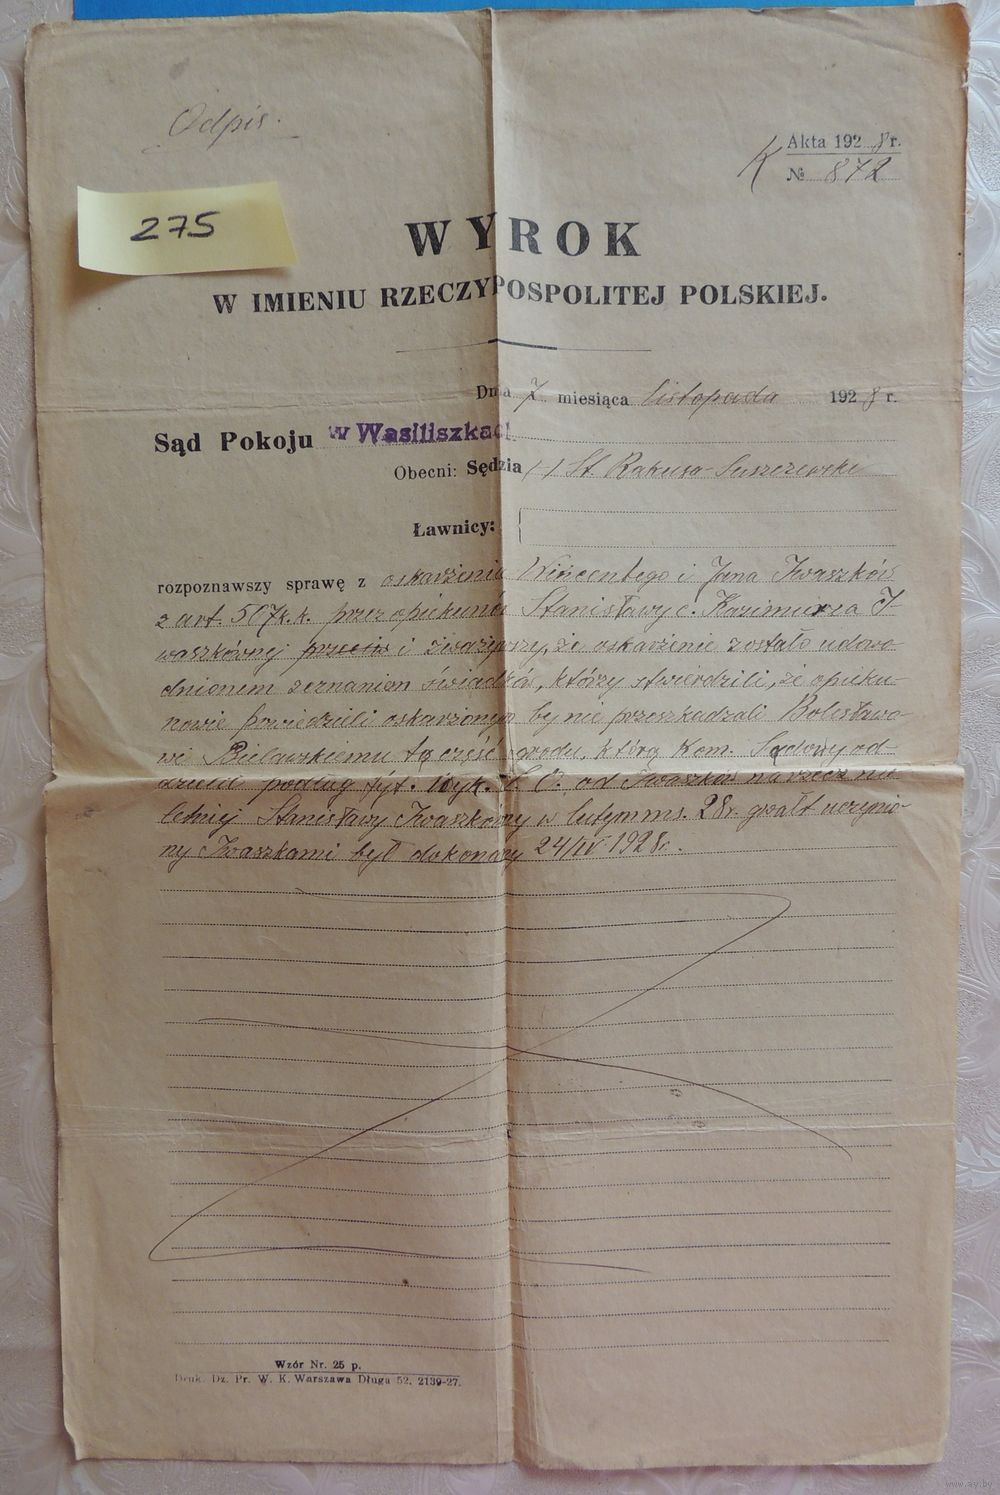 Odpis.
Akta 1928 r.
K № 872
275
WYROK
W IMIENIU RZECZYPOSPOLITEJ POLSKIEJ.
Dnia 7 miesiąca listopada 1928 r.
Sąd Pokoju w Wasiliszkach
Obecni: Sędzia /-/ St. Rakusa-Suszczewski
Ławnicy:
rozpoznawszy sprawę z oskarżenia Wincentego i Jana Iwaszków
z art. 507 k.k. przez opiekunów Stanisławy c. Kazimierza I-
waszkównej i zważywszy, że oskarżenie zostało udowo-
dnionem zeznaniem świadków, którzy stwierdzili, że opieku-
nowie powiedzieli oskarżonym by nie przeszkadzali Bolesławo-
wi Bielawskiemu tą część grodu, którą Kom. Sądowy od-
dzielił podług tyt. Wyk. od Iwaszków na rzecz nie
letniej Stanisławy Iwaszkównej w lutym ms. 28 r. gwałt uczynio-
ny Iwaszkami był dokonany 24/IV 1928 r.
Wzór Nr. 25 p.
Druk. Dz. Pr. W. K. Warszawa Długa 52. 2139-27.
www.ay.by